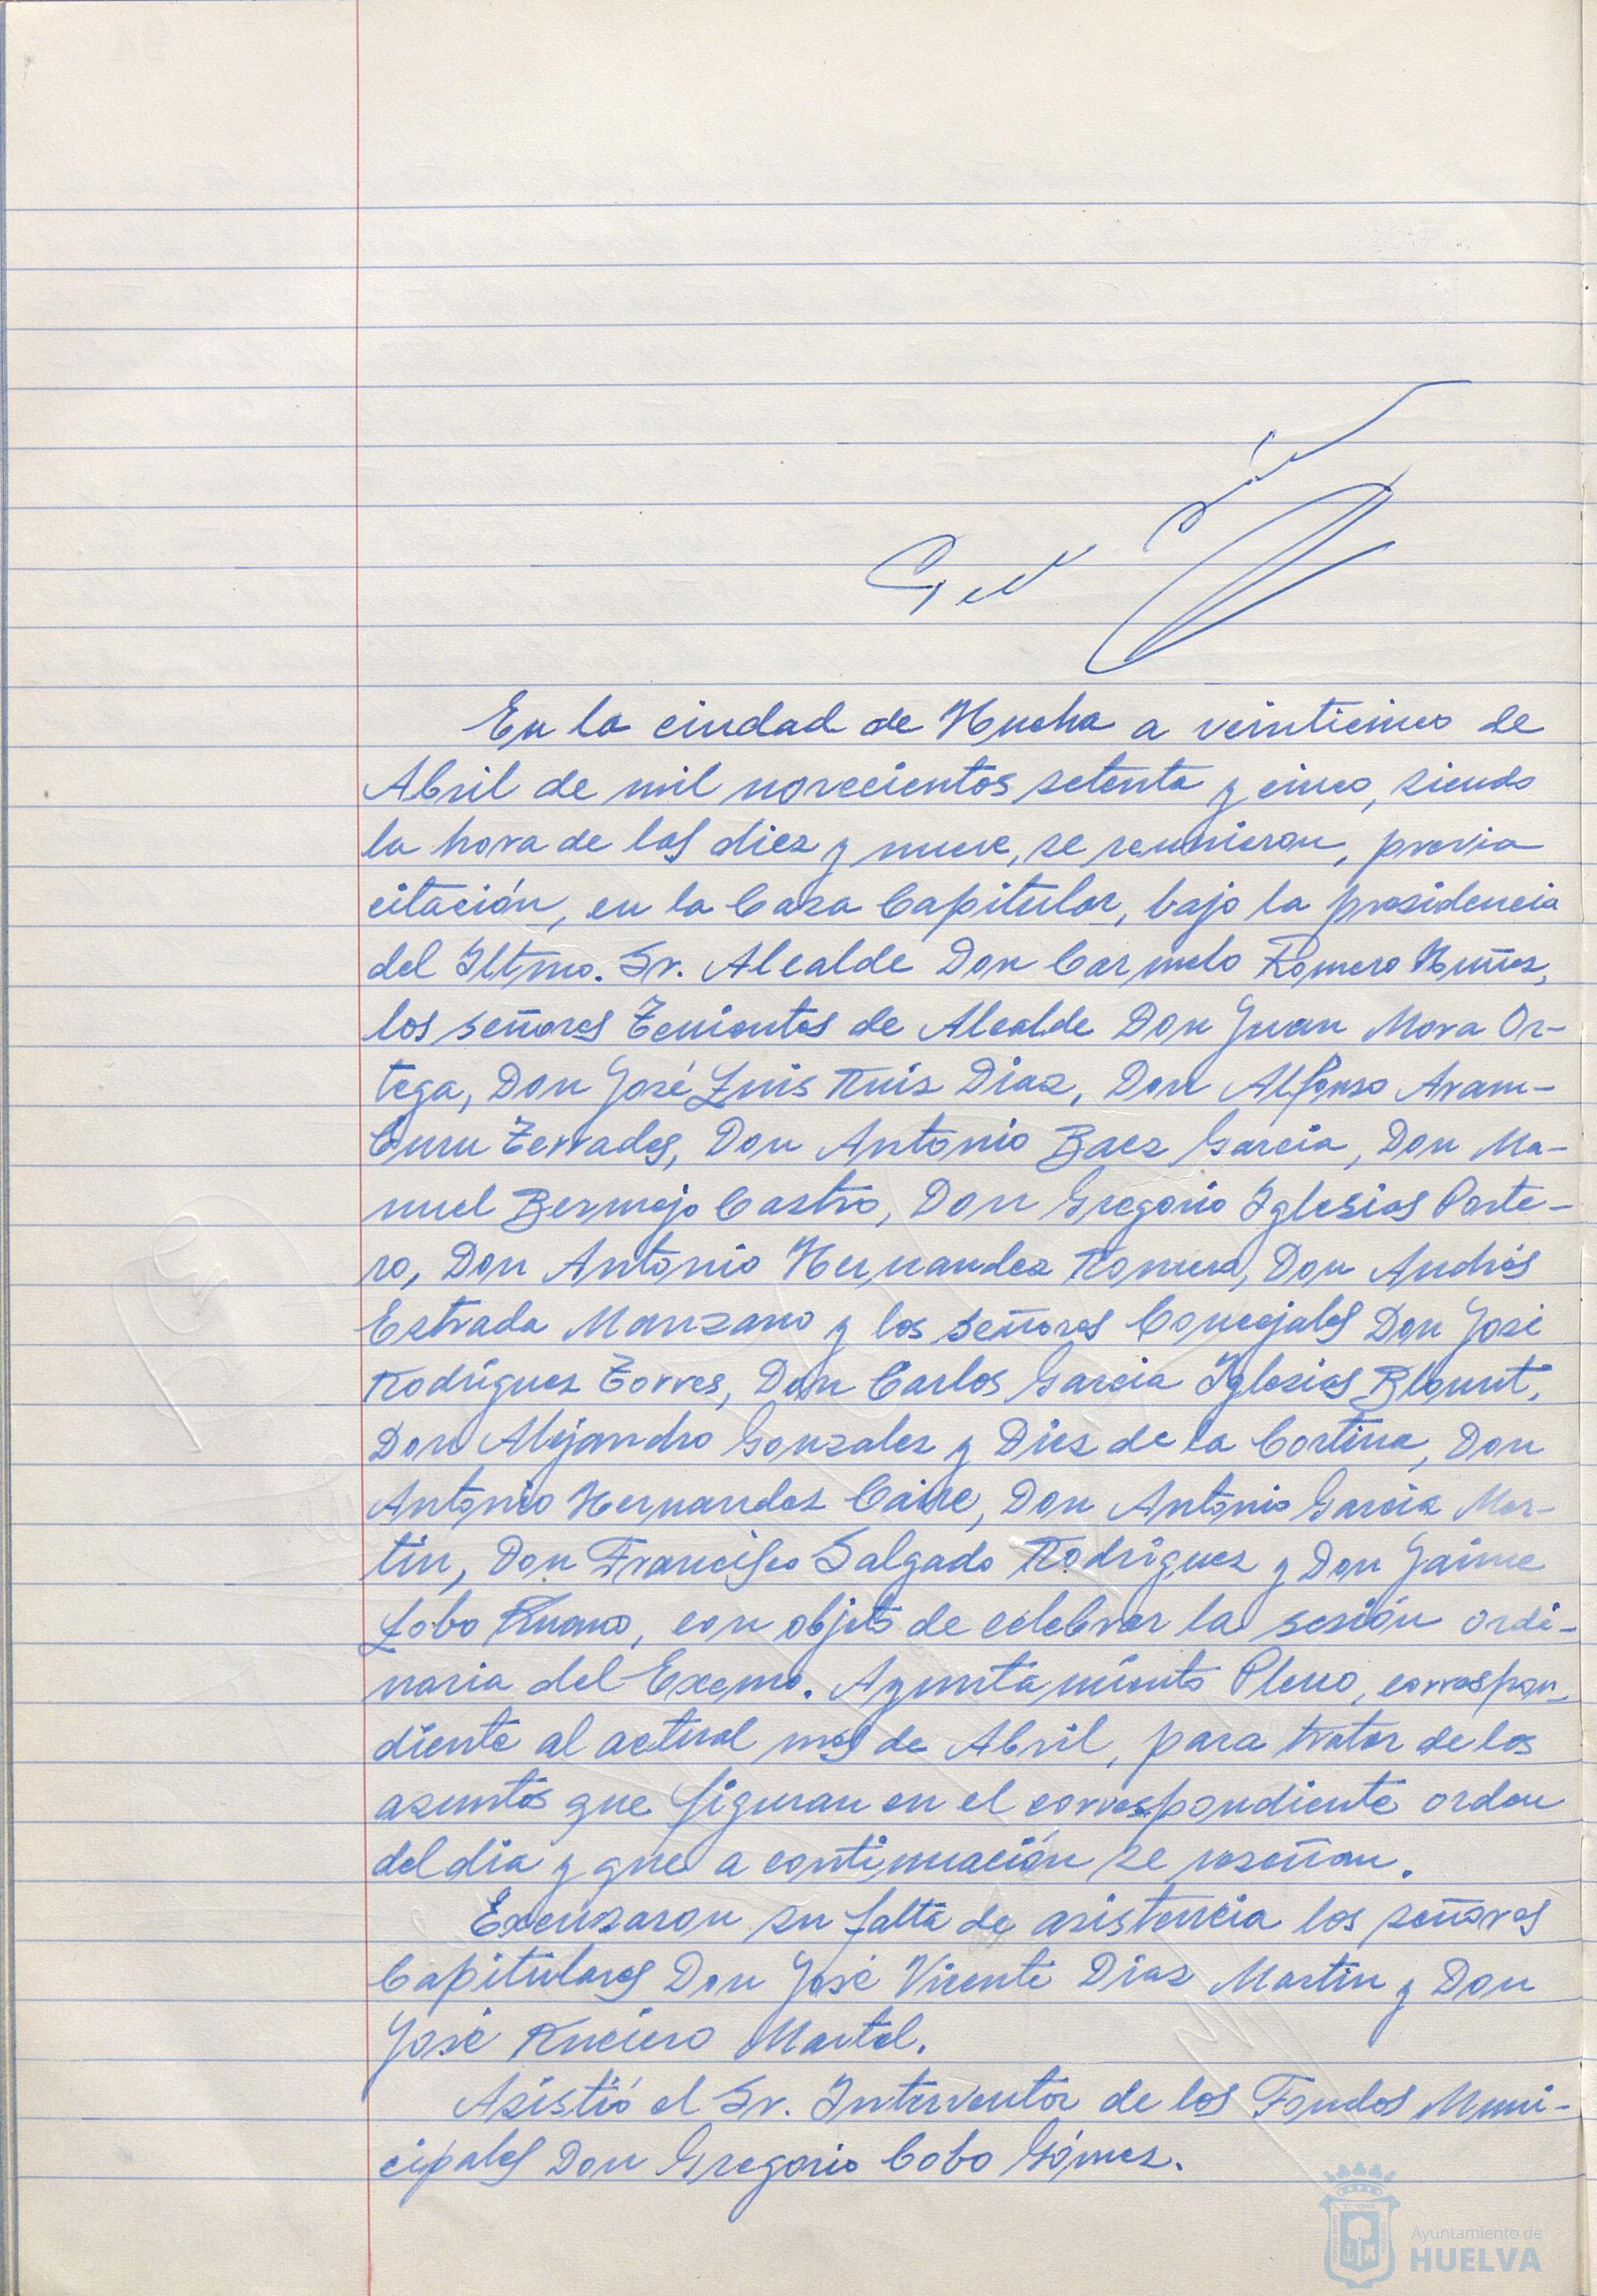 En la ciudad de Huelva a veinticinco de
Abril de mil novecientos setenta y cinco, siendo
la hora de las diez y nueve, se reunieron, previa
citación, en la Casa Capitular, bajo la presidencia
del Iltmo. Sr. Alcalde Don Carmelo Romero Nuñez,
los señores Tenientes de Alcalde Don Juan Mora Or-
tega, Don José Luis Ruiz Diaz, Don Alfonso Aram-
buru Terrades, Don Antonio Baez Garcia, Don Ma-
nuel Bermejo Castro, Don Gregorio Iglesias Porte-
ro, Don Antonio Hernandez Romero, Don Andrés
Estrada Manzano y los señores Concejales Don José
Rodríguez Torres, Don Carlos Garcia Iglesias Blount,
Don Alejandro Gonzalez y Diez de la Cortina, Don
Antonio Hernandez Caire, Don Antonio Garcia Mar-
tin, Don Francisco Salgado Rodriguez y Don Jaime
Lobo Ruano, con objeto de celebrar la sesión ordi-
naria del Excmo. Ayuntamiento Pleno, correspon-
diente al actual mes de Abril, para tratar de los
asuntos que figuran en el correspondiente orden
del dia y que a continuación se reseñan.
Excusaron su falta de asistencia los señores
Capitulares Don José Vicente Diaz Martin y Don
José Martel.
Asistió el Sr. Interventor de los Fondos Muni-
cipales Don Gregorio Cobo Gómez.
Ayuntamiento de
HUELVA